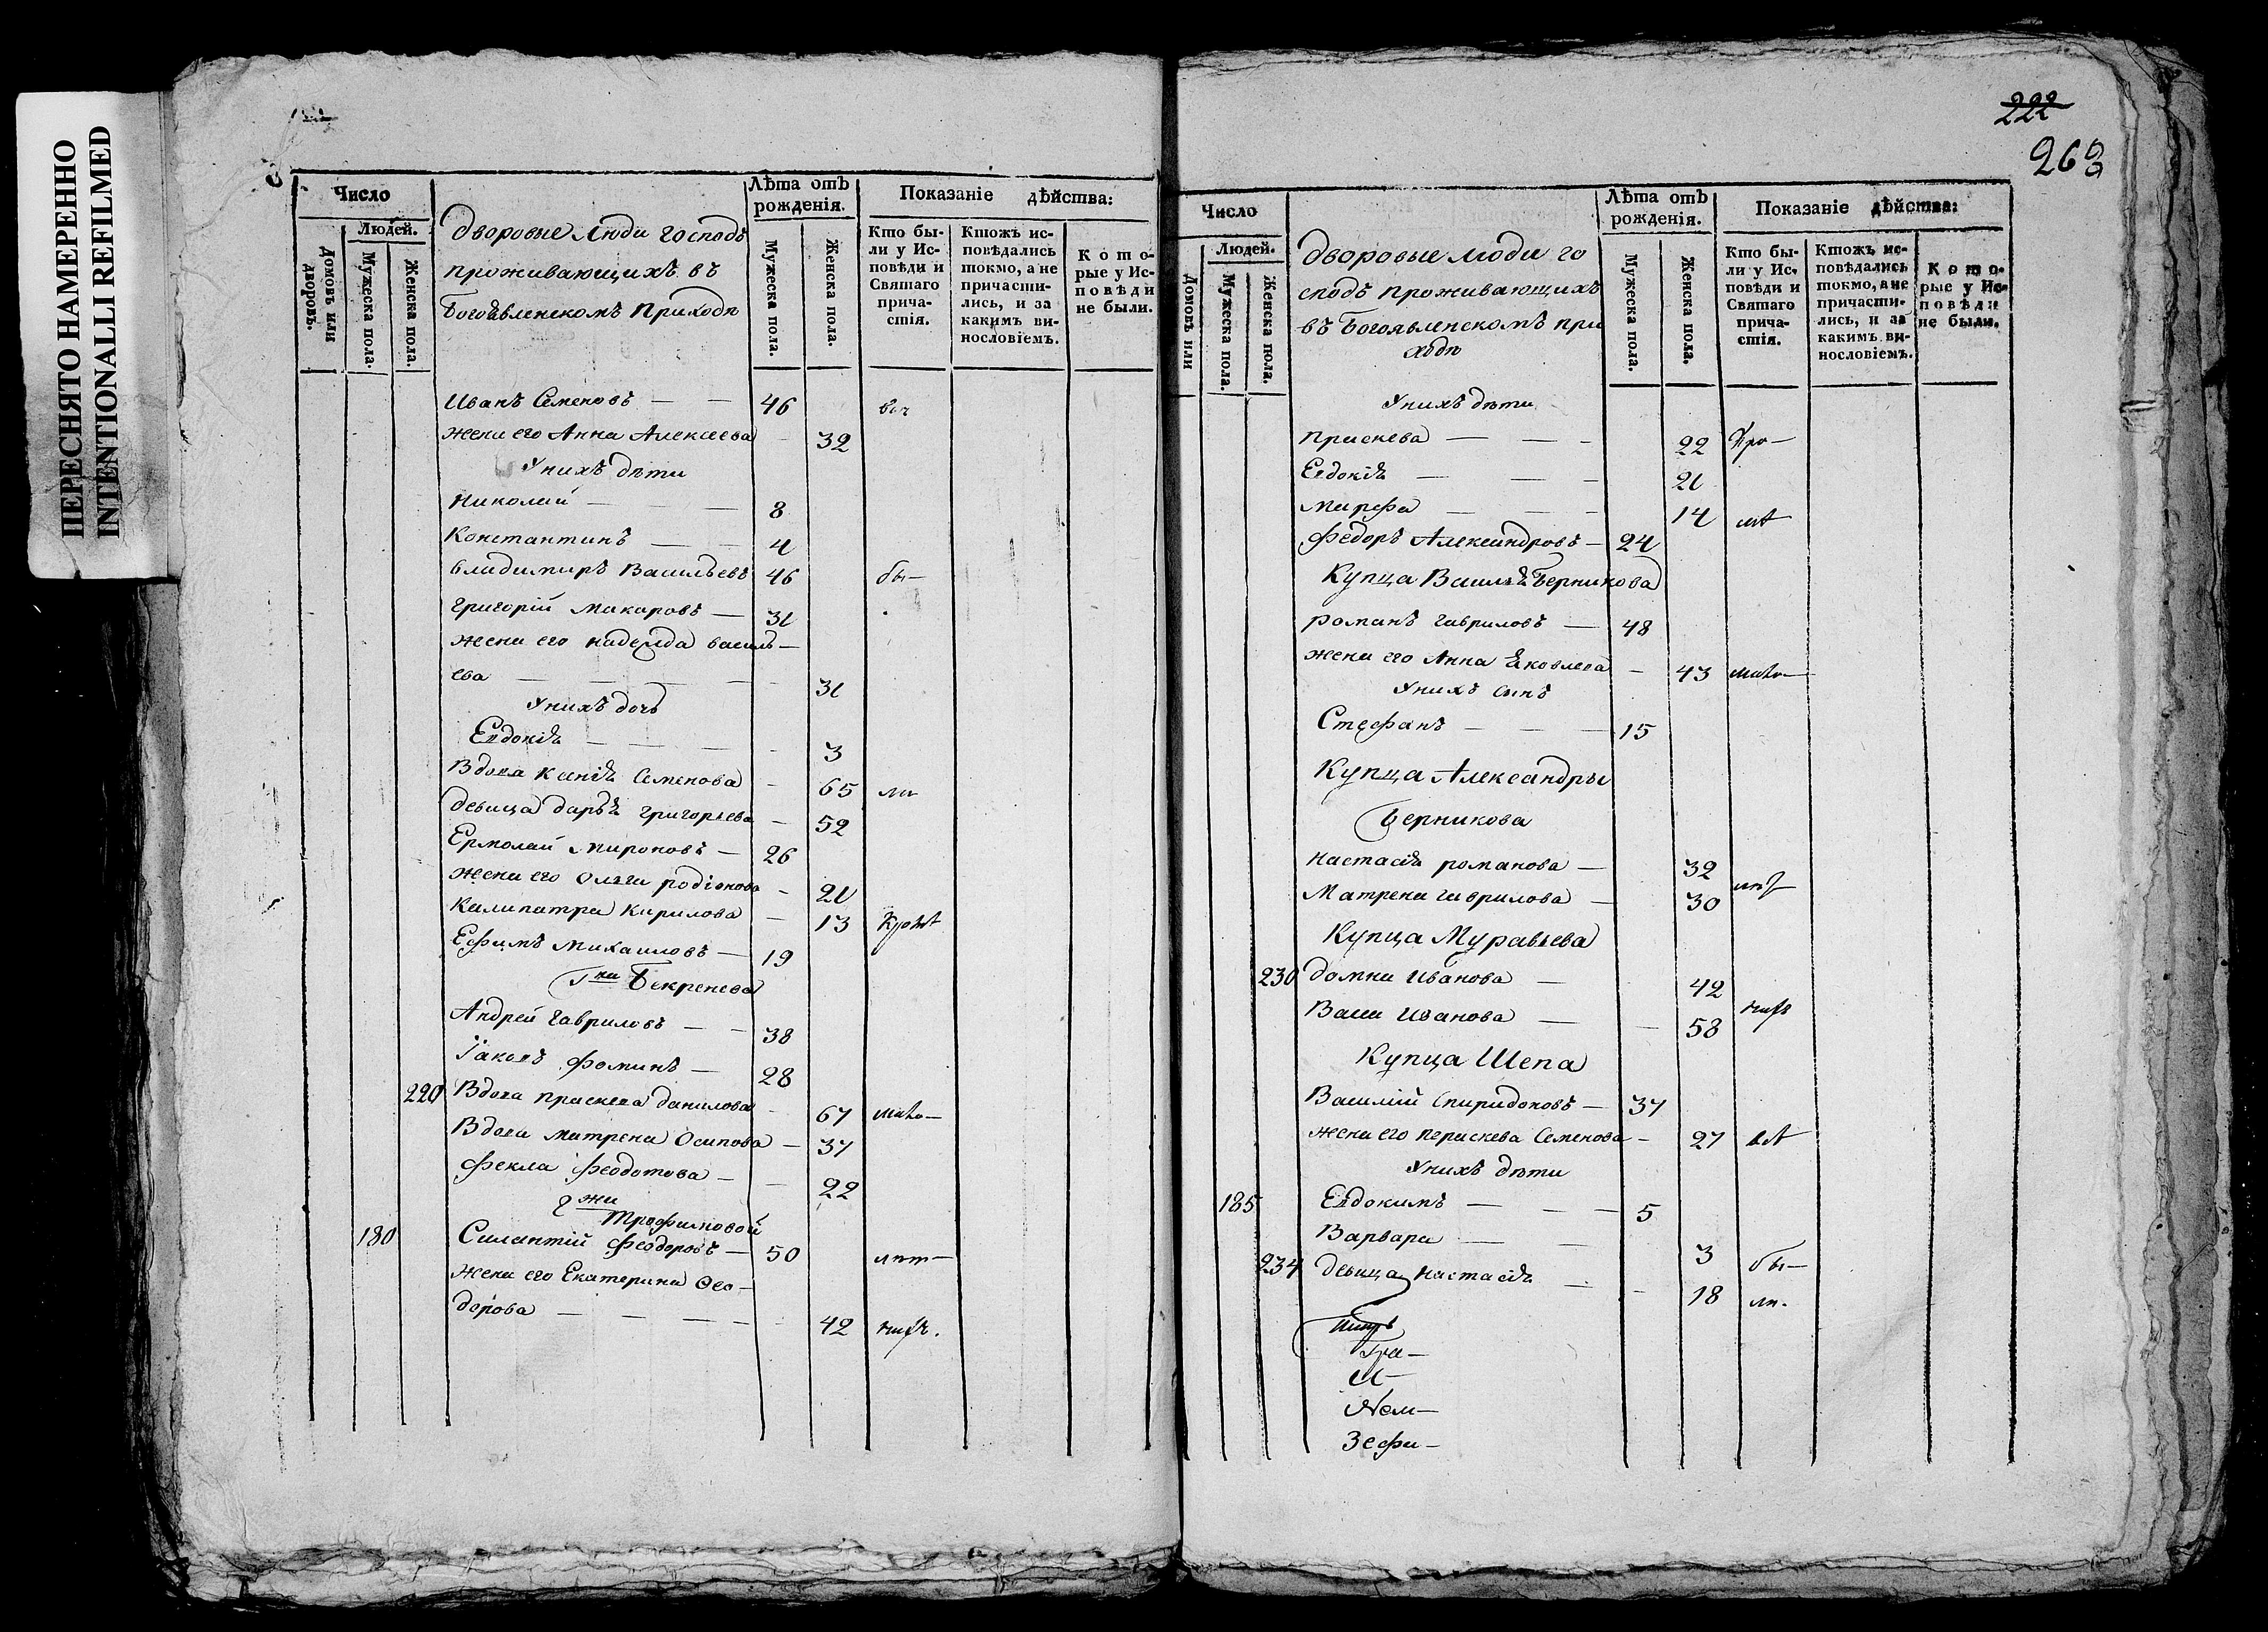 ПЕРЕСНЯТО НАМЕРЕННО
INTENTIONALLI REFILMED
Число
Людей.
Домовъ или дворовъ.
Мужеска пола.
Женска пола.
Дворовые люди господъ
проживающихъ въ
Богоявленскомъ Приходѣ
Лѣта отъ рожденія.
Мужеска пола.
Женска пола.
Показаніе дѣйства:
Кто бы-
ли у Ис-
повѣди и
Святаго
прича-
стія.
Ктожъ ис-
повѣдались
токмо, а не
причасти-
лись, и за
какимъ ви-
нословіемъ.
Кото-
рые у Ис-
повѣди
не были.
Иванъ Семеновъ — — 46
жена его Анна Алексеева - 32
У нихъ дѣти
Николай — — 8
Константинъ — — 4
Владимиръ Васильевъ 46 бы—
Григорій Макаровъ — 31
жена его Надежда Василь—
ева — — — 31
У нихъ дочь
Евдокія — — — 3
Вдова Ксенія Семенова - 65
девица Дарья Григорьева — 52
Ермолай Мироновъ — 26
жена его Олга Родіонова - 21
Калипатра Кирилова — 13
Ефимъ Михаиловъ — 19
Гна Бекренева
Андрей Гавриловъ — — 38
Іаковъ Фоминъ — 28
220 Вдова Прасковa Данилова - 67
Вдова Матрена Осипова — 37
Фекла Феодотова — — 22
Гжи
Трофимовой
180 Силантій Феодоровъ — 50
жена его Екатерина Фео—
дорова — — — 42
222
263
Число
Людей.
Домовъ или
Мужеска пола.
Женска пола.
Дворовые люди го
сподъ проживающихъ
въ Богоявленскомъ При
ходѣ
Лѣта отъ рожденія.
Мужеска пола.
Женска пола.
Показаніе дѣйства:
Кто бы-
ли у Ис-
повѣди и
Святаго
прича-
стія.
Ктожъ ис-
повѣдались
токмо, а не
причасти-
лись, и за
какимъ ви-
нословіемъ.
Кото-
рые у Ис-
повѣди
не были.
У нихъ дѣти
Праскева — — - 22
Евдокія — — - 21
Марфа — — - 14
Федоръ Александровъ — 24
Купца Василья Берникова
Романъ Гавриловъ — 48
жена его Анна Яковлева - 43
У нихъ сынъ
Стефанъ — — — 15
Купца Александры
Берникова
Настасія Романова — 32
Матрена Гаврилова — 30
Купца Муравьева
230 Домна Иванова — 42
Васа Иванова — - 58
Купца Шепа
Василій Спиридоновъ — 37
жена его Праскева Семенова - 27
У нихъ дѣти
185 Евдокимъ — — — 5
Варвара — — 3 бы—
234 девица Настасія — - 18
Гра—